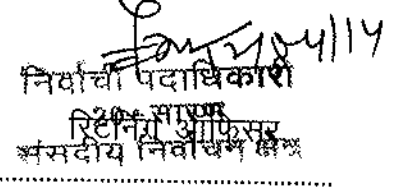 निर्वाची पदाधिकारी
20- सारण
रिटर्निंग ऑफिसर
संसदीय निर्वाचन क्षेत्र